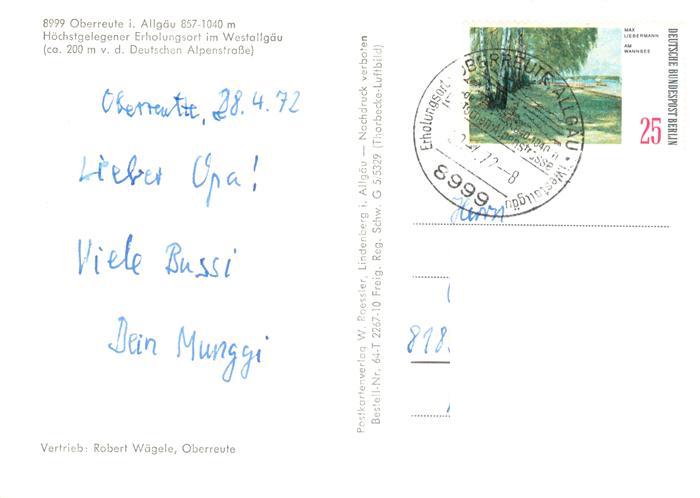 8999 Oberreute i. Allgäu 857-1040 m
Höchstgelegener Erholungsort im Westallgäu
(ca. 200 m v. d. Deutschen Alpenstraße)
Oberreute, 28.4.72
Lieber Opa!
Viele Bussi
Dein Munggi
Vertrieb: Robert Wägele, Oberreute
Postkartenverlag W. Roessler, Lindenberg i. Allgäu — Nachdruck verboten
Bestell-Nr. 64-T 2267-10 Freig. Reg. Schw. G 5/5329 (Thorbecke-Luftbild)
MAX
LIEBERMANN
AM
WANNSEE
DEUTSCHE BUNDESPOST BERLIN
25
OBERREUTE ALLGÄU
Erholungsort
(Westallgäu)
72-8
8999
Herrn
818